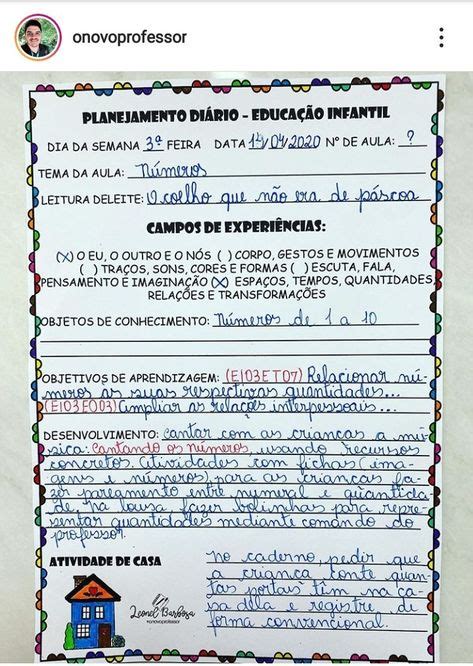 onovoprofessor
PLANEJAMENTO DIÁRIO - EDUCAÇÃO INFANTIL
DIA DA SEMANA 3ª FEIRA DATA 14/04/2020 Nº DE AULA: ?
TEMA DA AULA: Números
LEITURA DELEITE: O coelho que não era de páscoa
CAMPOS DE EXPERIÊNCIAS:
(X) O EU, O OUTRO E O NÓS ( ) CORPO, GESTOS E MOVIMENTOS
( ) TRAÇOS, SONS, CORES E FORMAS ( ) ESCUTA, FALA,
PENSAMENTO E IMAGINAÇÃO (X) ESPAÇOS, TEMPOS, QUANTIDADES,
RELAÇÕES E TRANSFORMAÇÕES
OBJETOS DE CONHECIMENTO: Números de 1 a 10
OBJETIVOS DE APRENDIZAGEM: (EI03ET07) Relacionar nú-
meros às suas respectivas quantidades...
(EI03EO03) Ampliar as relações interpessoais...
DESENVOLVIMENTO: Cantar com as crianças a mú-
sica: Cantando os números, usando recursos
concretos. Atividades com fichas (ima-
gens e números), para as crianças fa-
zer pareamento entre numeral e quantida-
de. Na lousa, fazer bolinhas para repre-
sentar quantidades mediante comando do
professor.
ATIVIDADE DE CASA
No caderno, pedir que
a criança conte quan-
tas portas têm na ca-
sa dela e registre de
forma convencional.
Leonel Barbosa
@onovoprofessor